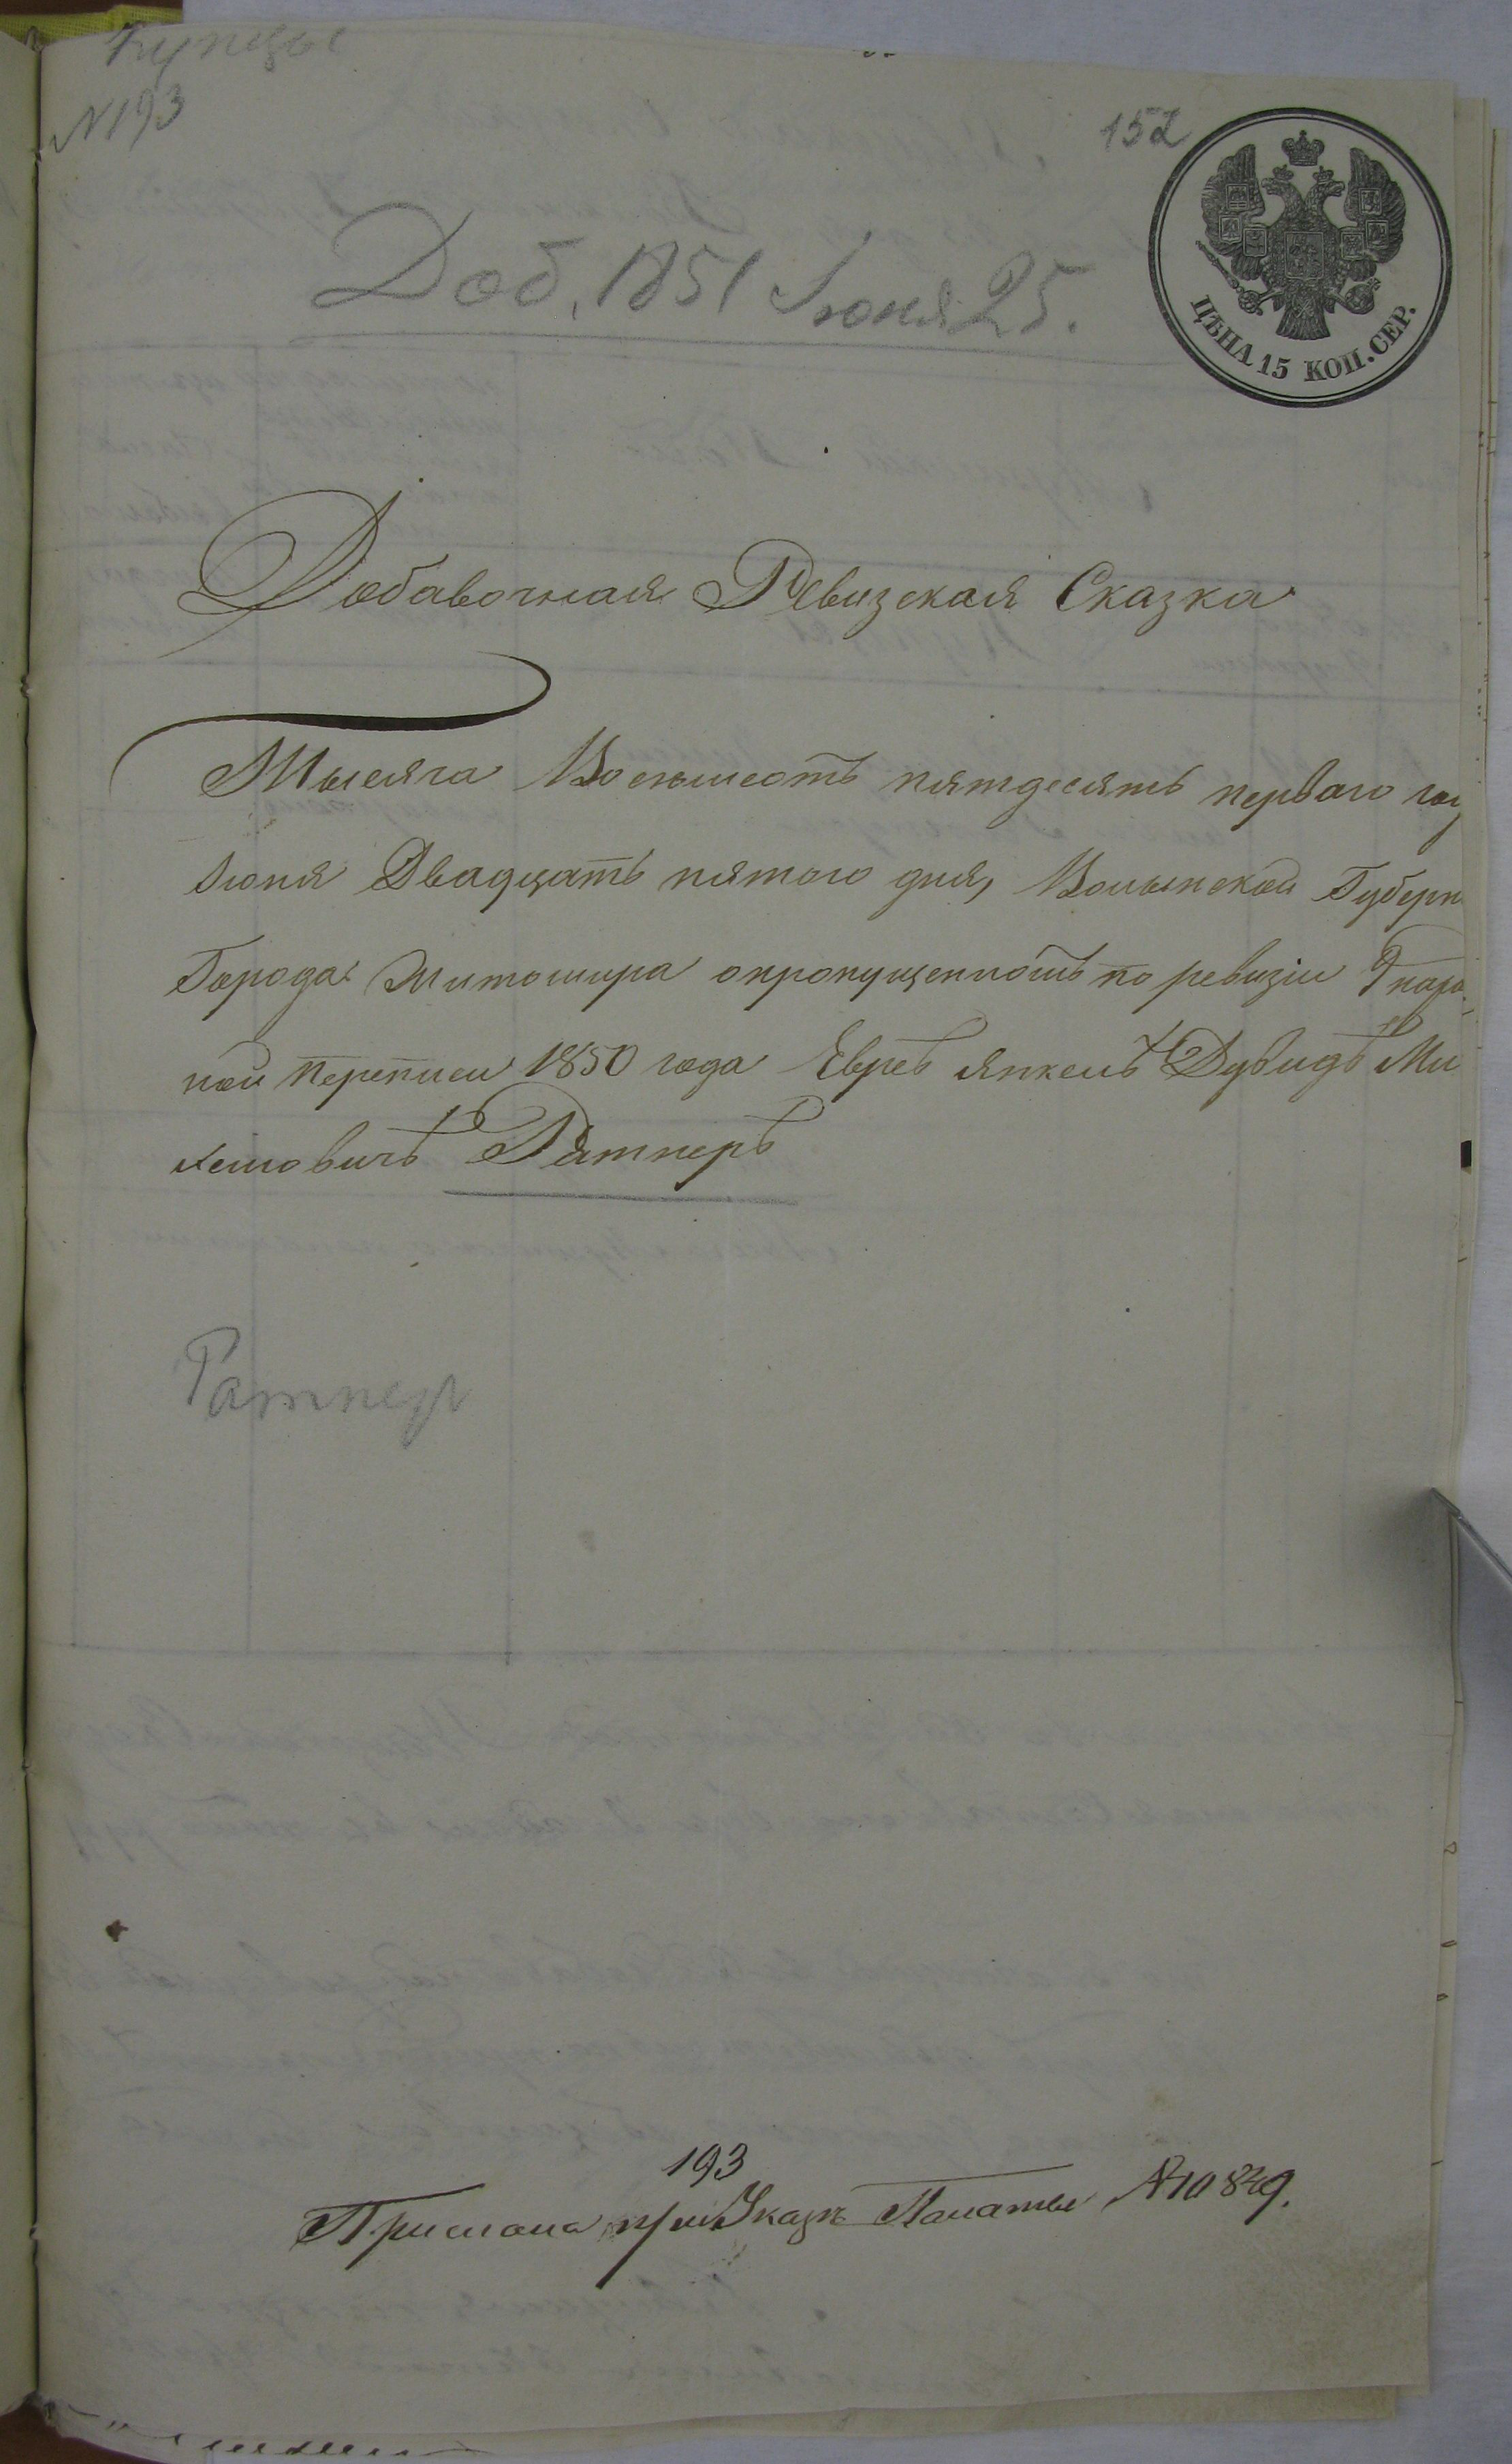 Купцы
№193
152
Доб. 1851 Июня 25.
ЦѢНА 15 КОП. СЕР.
Добавочная Ревизская Сказка
Тысяча Восемьсотъ пятдесятъ перваго год
Июня Двадцать пятого дня, Волынской Губерн
Города Житомира опропущенномъ по ревизіи Гнаро
ной переписи 1850 года Евреѣ Янкелъ Дувидъ Ми
хелиовичъ Ратнеръ
Ратнер
193
Прислана при Указѣ Палаты №10849.